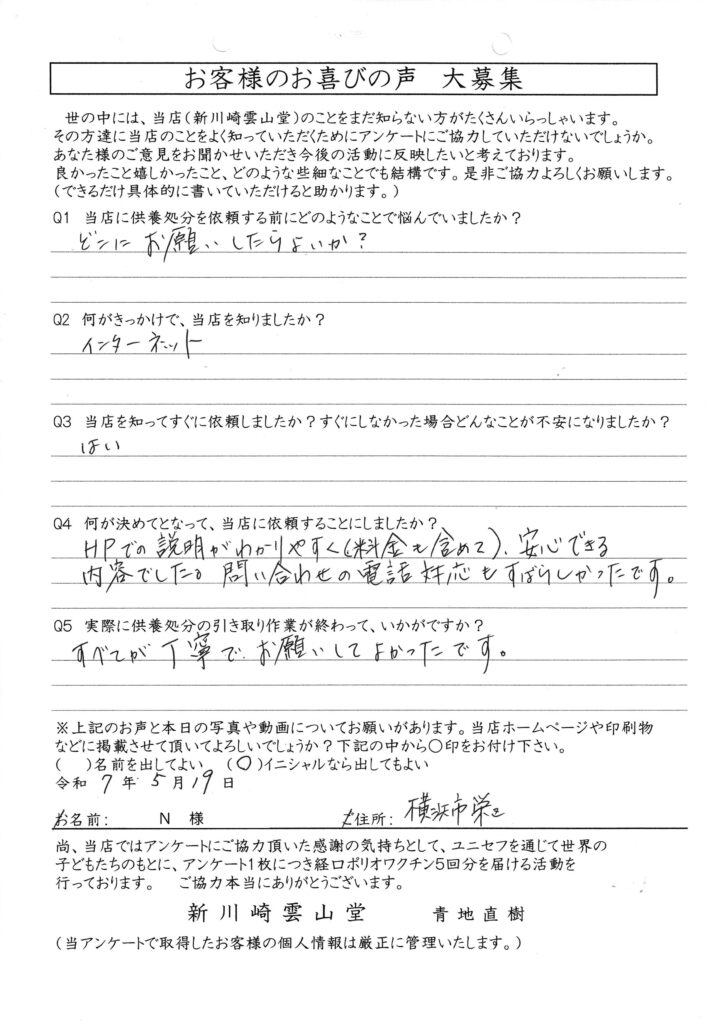 お客様のお喜びの声 大募集
世の中には、当店(新川崎雲山堂)のことをまだ知らない方がたくさんいらっしゃいます。
その方達に当店のことをよく知っていただくためにアンケートにご協力していただけないでしょうか。
あなた様のご意見をお聞かせいただき今後の活動に反映したいと考えております。
良かったこと嬉しかったこと、どのような些細なことでも結構です。是非ご協力よろしくお願いします。
(できるだけ具体的に書いていただけると助かります。)
Q1 当店に供養処分を依頼する前にどのようなことで悩んでいましたか?
どこにお願いしたらよいか?
Q2 何がきっかけで、当店を知りましたか?
インターネット
Q3 当店を知ってすぐに依頼しましたか?すぐにしなかった場合どんなことが不安になりましたか?
はい
Q4 何が決めてとなって、当店に依頼することにしましたか?
HPでの説明がわかりやすく(料金も含めて)、安心できる
内容でした。問い合わせの電話対応もすばらしかったです。
Q5 実際に供養処分の引き取り作業が終わって、いかがですか?
すべてが丁寧で、お願いしてよかったです。
※上記のお声と本日の写真や動画についてお願いがあります。当店ホームページや印刷物
などに掲載させて頂いてよろしいでしょうか?下記の中から〇印をお付け下さい。
( )名前を出してよい (〇)イニシャルなら出してもよい
令和 7年 5月 19日
お名前: N 様 ご住所: 横浜市栄区
尚、当店ではアンケートにご協力頂いた感謝の気持ちとして、ユニセフを通じて世界の
子どもたちのもとに、アンケート1枚につき経口ポリオワクチン5回分を届ける活動を
行っております。 ご協力本当にありがとうございます。
新川崎雲山堂 青地直樹
(当アンケートで取得したお客様の個人情報は厳正に管理いたします。)